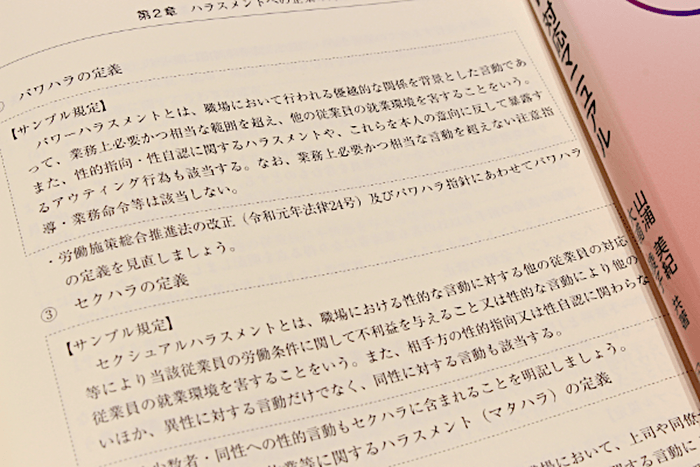 第2章 ハラスメントへの企業の
パワハラの定義
【サンプル規定】
パワーハラスメントとは、職場において行われる優越的な関係を背景とした言動であ
って、業務上必要かつ相当な範囲を超え、他の従業員の就業環境を害することをいう。
また、性的指向・性自認に関するハラスメントや、これらを本人の意向に反して暴露す
るアウティング行為も該当する。なお、業務上必要かつ相当な言動を超えない注意指
導・業務命令等は該当しない。
・労働施策総合推進法の改正（令和元年法律24号）及びパワハラ指針にあわせてパワハラ
の定義を見直しましょう。
③ セクハラの定義
【サンプル規定】
セクシュアルハラスメントとは、職場における性的な言動に対する他の従業員の対応
等により当該従業員の労働条件に関して不利益を与えること又は性的な言動により他の
従業員の就業環境を害することをいう。また、相手方の性的指向又は性自認に関わらな
いほか、異性に対する言動だけでなく、同性に対する言動も該当する。
少数者・同性への性的言動もセクハラに含まれることを明記しましょう。
業等に関するハラスメント（マタハラ）の定義
職場において、上司や同僚
対応マニュアル
山浦 美紀
共著